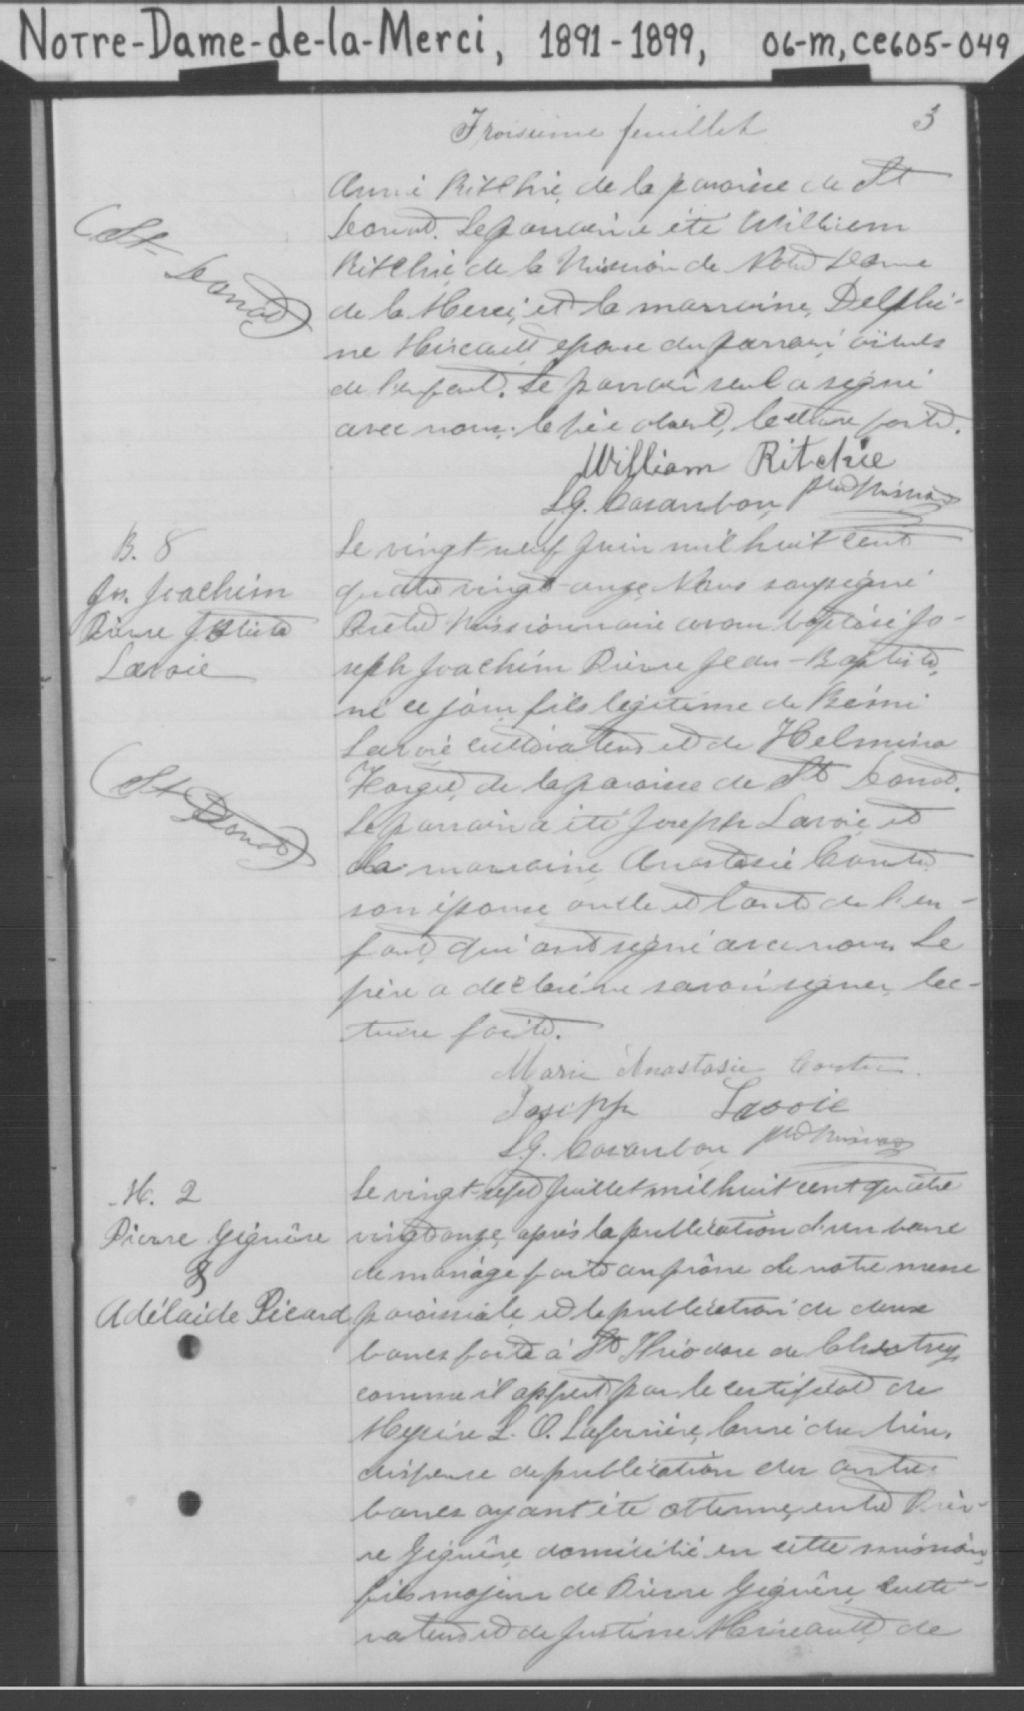 Notre-Dame-de-la-Merci, 1891-1899, 06-m, ce605-049
Troisieme feuillet 3
Annie Ritchie, de la paroisse de St
Donat. Le parrain a été William
Ritchie de la Mission de Notre Dame
de la Merci, et la marraine, Delphi-
ne epouse du parrain
de l'enfant. Le parrain seul a signé
avec nous, le père absent, lecture faite.
(St Donat)
William Ritchie
L.G. Casaubon ptre Miss
B. 8
Jos. Joachim
Pierre J Bte
Lavoie
Le vingt neuf Juin mil huit cent
quatre vingt onze, Nous soussigné
Prêtre Missionnaire avons baptisé Jo-
seph Joachim Pierre Jean-Baptiste,
né ce jour, fils légitime de Rémi
Lavoie cultivateur et de Helmina
de la paroisse de St Donat.
(St Donat)
Le parrain a été Joseph Lavoie et
la marraine Anastasie
son épouse, oncle et tante de l'en-
fant, qui ont signé avec nous. Le
père a déclaré ne savoir signer, lec-
ture faite.
Marie Anastasie
Joseph Lavoie
L.G. Casaubon ptre Miss
M. 2
Pierre Gignère
&
Adélaide Picard
Le vingt-sept Juillet mil huit cent quatre
vingt onze, après la publication d'un banc
de mariage faite au prône de notre messe
paroissiale, et la publication de deux
bancs faite à St Théodore de Chertsey
comme il appert par le certificat de
Messire L. O. Laferrière, Curé du lieu,
dispense de publication des autres
bancs ayant été obtenue, entre Pier-
re Gignère, domicilié en cette mission,
fils majeur de Pierre Gignère, culti-
vateur et de Justine Mireault, de